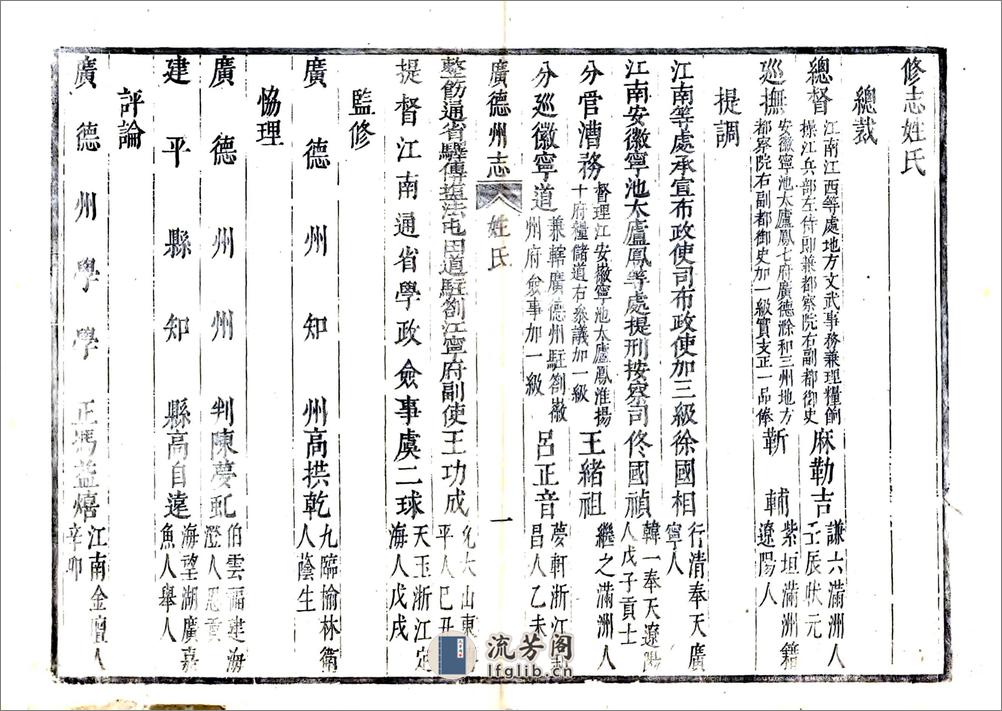 修志姓氏
總裁
總督江南江西等處地方文武事務兼理糧餉操江兵部左侍即兼都察院右副都御史麻勒吉謙六滿洲人壬辰狀元
巡撫安徽寧池太廬鳳七府廣德滁和三州地方都察院右副都御史加一級實支正一品俸靳輔紫垣滿洲籍遼陽人
提調
江南等處承宣布政使司布政使加三級徐國相行清奉天廣寧人
江南安徽寧池太廬鳳等處提刑按察司佟國禎韓一奉天遼陽人戊子貢士
分管漕務督理江安徽寧池太廬鳳淮揚十府糧儲道右叅議加一級王緒祖繼之滿洲人
分巡徽寧道兼轄廣德州駐劄徽州府僉事加一級呂正音夢軒浙江昌人乙未
廣德州志 姓氏 一
整飭通省驛傳塩法屯田道駐劄江寧府副使王功成山東平人己丑
提督江南通省學政僉事虞二球天玉浙江定海人戊戌
監修
廣德州知州高拱乾九臨榆林衛人蔭生
恊理
廣德州州判陳夢虬伯雲福建海澄人恩貢
建平縣知縣高自遠海望湖廣嘉魚人舉人
評論
廣德州學學正馮益熺江南金壇人辛卯
流芳阁
lfglib.com